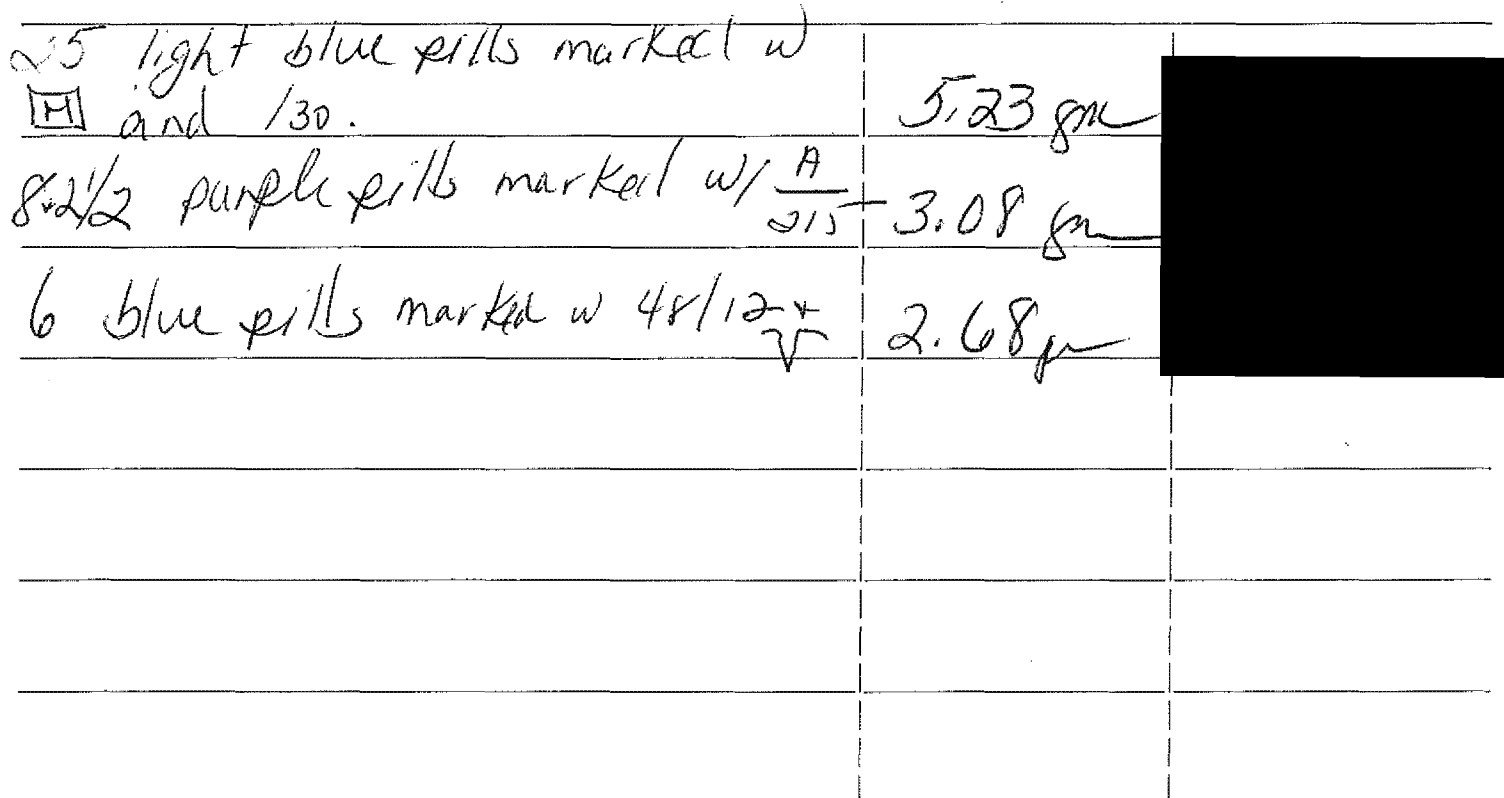 25 light blue pills marked w
M and 130. 5.23 gm
8+2 1/2 purple pills marked w/ A/215 3.08 gm
6 blue pills marked w 48/12 2.68 gm